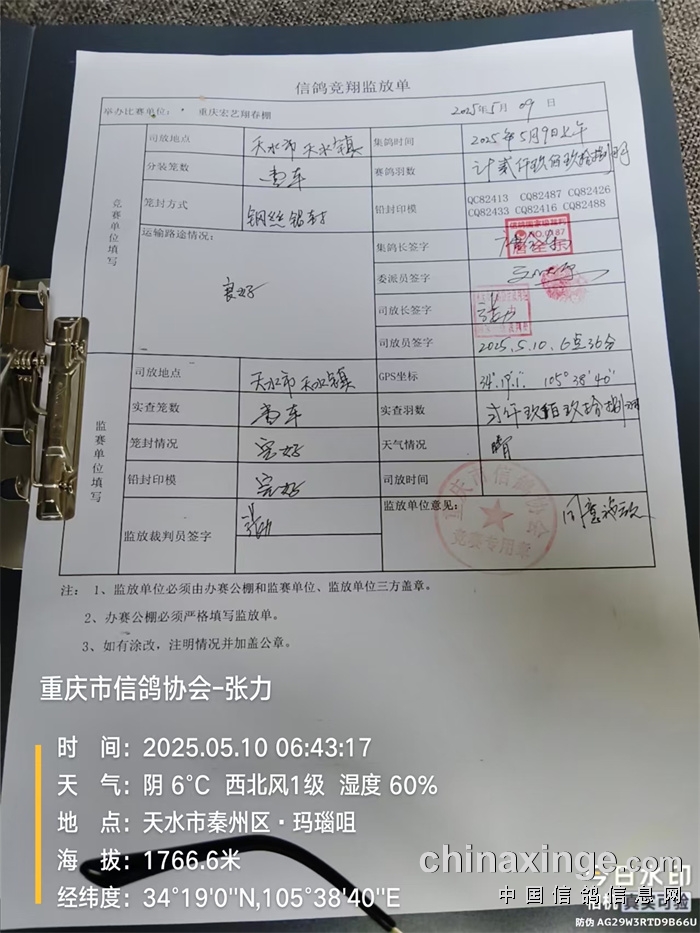 信鸽竞翔监放单
举办比赛单位： 重庆宏艺翔春棚 2025年5月09日
竞赛单位填写
司放地点 天水市天水镇 集鸽时间 2025年5月9日上午
分装笼数 壹车 赛鸽羽数 计贰仟玖佰玖拾捌羽
笼封方式 钢丝铅封 铅封印模 QC82413 CQ82487 CQ82426
CQ82433 CQ82416 CQ82488
运输路途情况： 集鸽长签字
良好 委派员签字
司放长签字 张力
司放员签字 2025.5.10.6点36分
监赛单位填写
司放地点 天水市天水镇 GPS坐标 34°19′1″ 105°38′40″
实查笼数 壹车 实查羽数 贰仟玖佰玖拾捌羽
笼封情况 完好 天气情况 晴
铅封印模 完好 司放时间
监放裁判员签字 张力 监放单位意见： 同意放飞
重庆市信鸽协会
竞赛专用章
注： 1、监放单位必须由办赛公棚和监赛单位、监放单位三方盖章。
2、办赛公棚必须严格填写监放单。
3、如有涂改，注明情况并加盖公章。
重庆市信鸽协会-张力
时 间：2025.05.10 06:43:17
天 气：阴 6°C 西北风1级 湿度 60%
地 点：天水市秦州区·玛瑙咀
海 拔：1766.6米
经纬度：34°19'0"N,105°38'40"E
chinaxinge.com
今日水印
中国信鸽信息网
相机 真实可验
防伪 AG29W3RTD9B66U